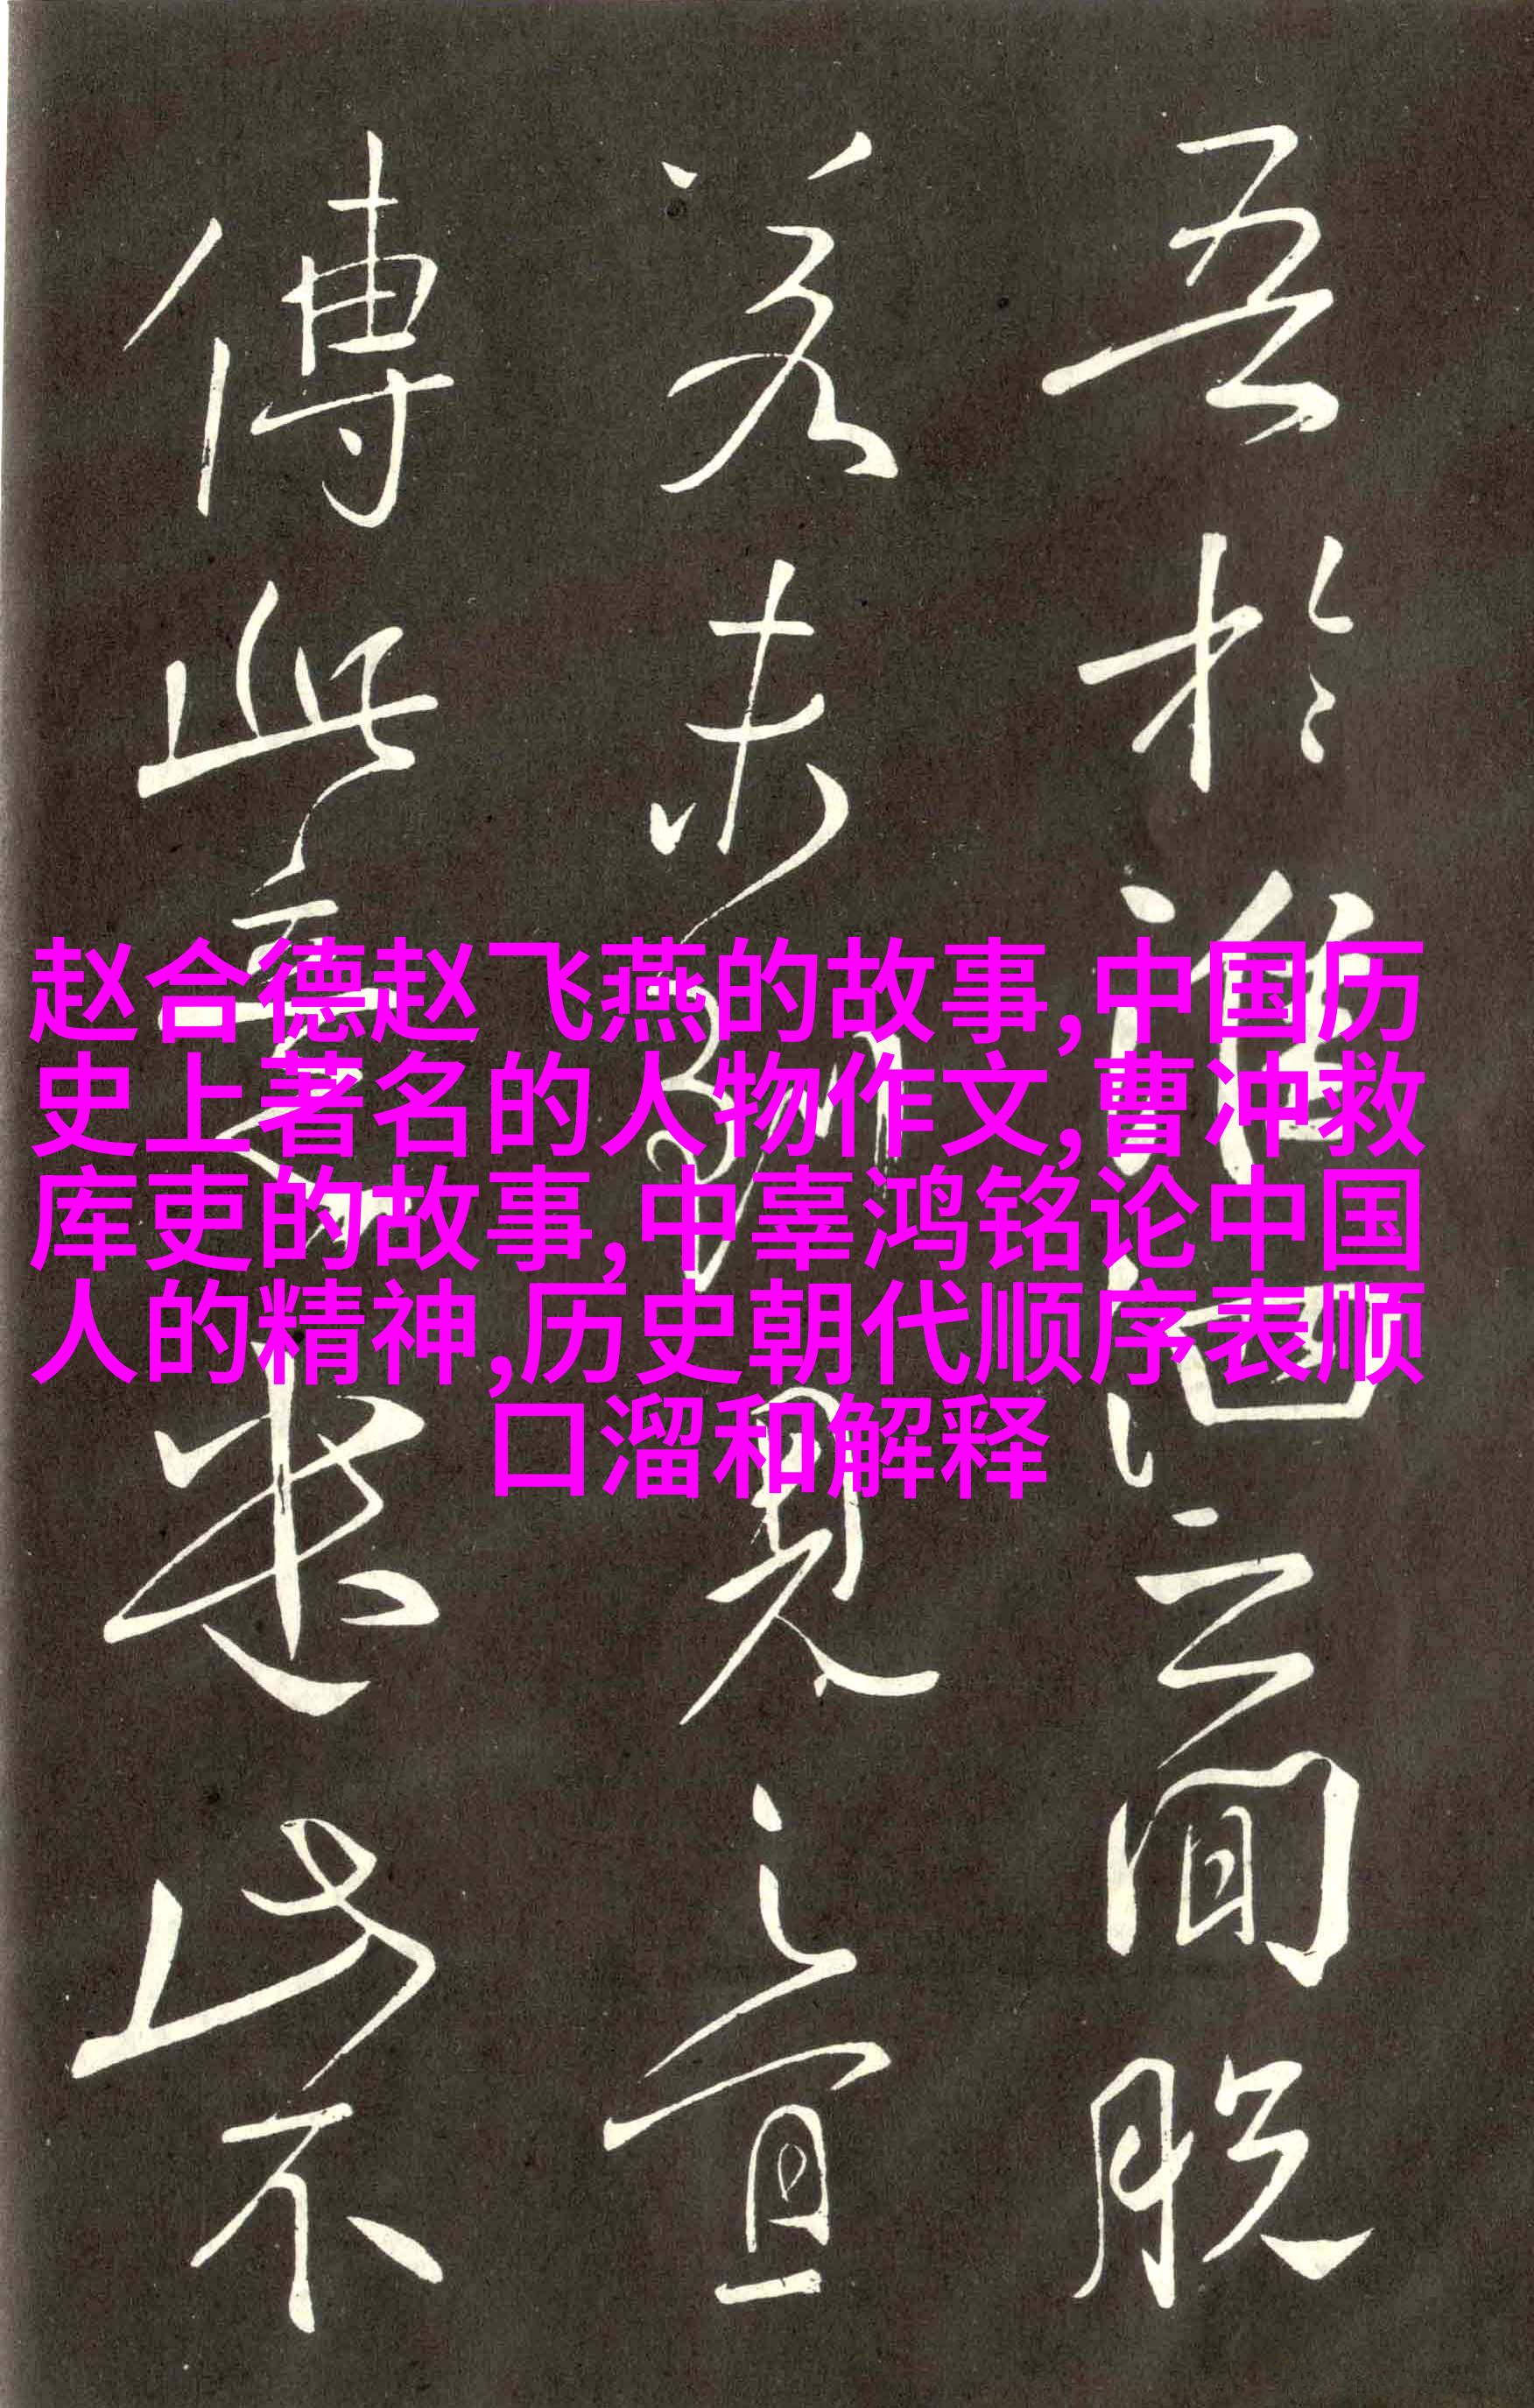 赵合德赵飞燕的故事,中国历
史上著名的人物作文,曹冲救
库吏的故事,中辜鸿铭论中国
人的精神,历史朝代顺序表顺
口溜和解释
吾於淮泗之間脫
若未見之宜
傳此意不